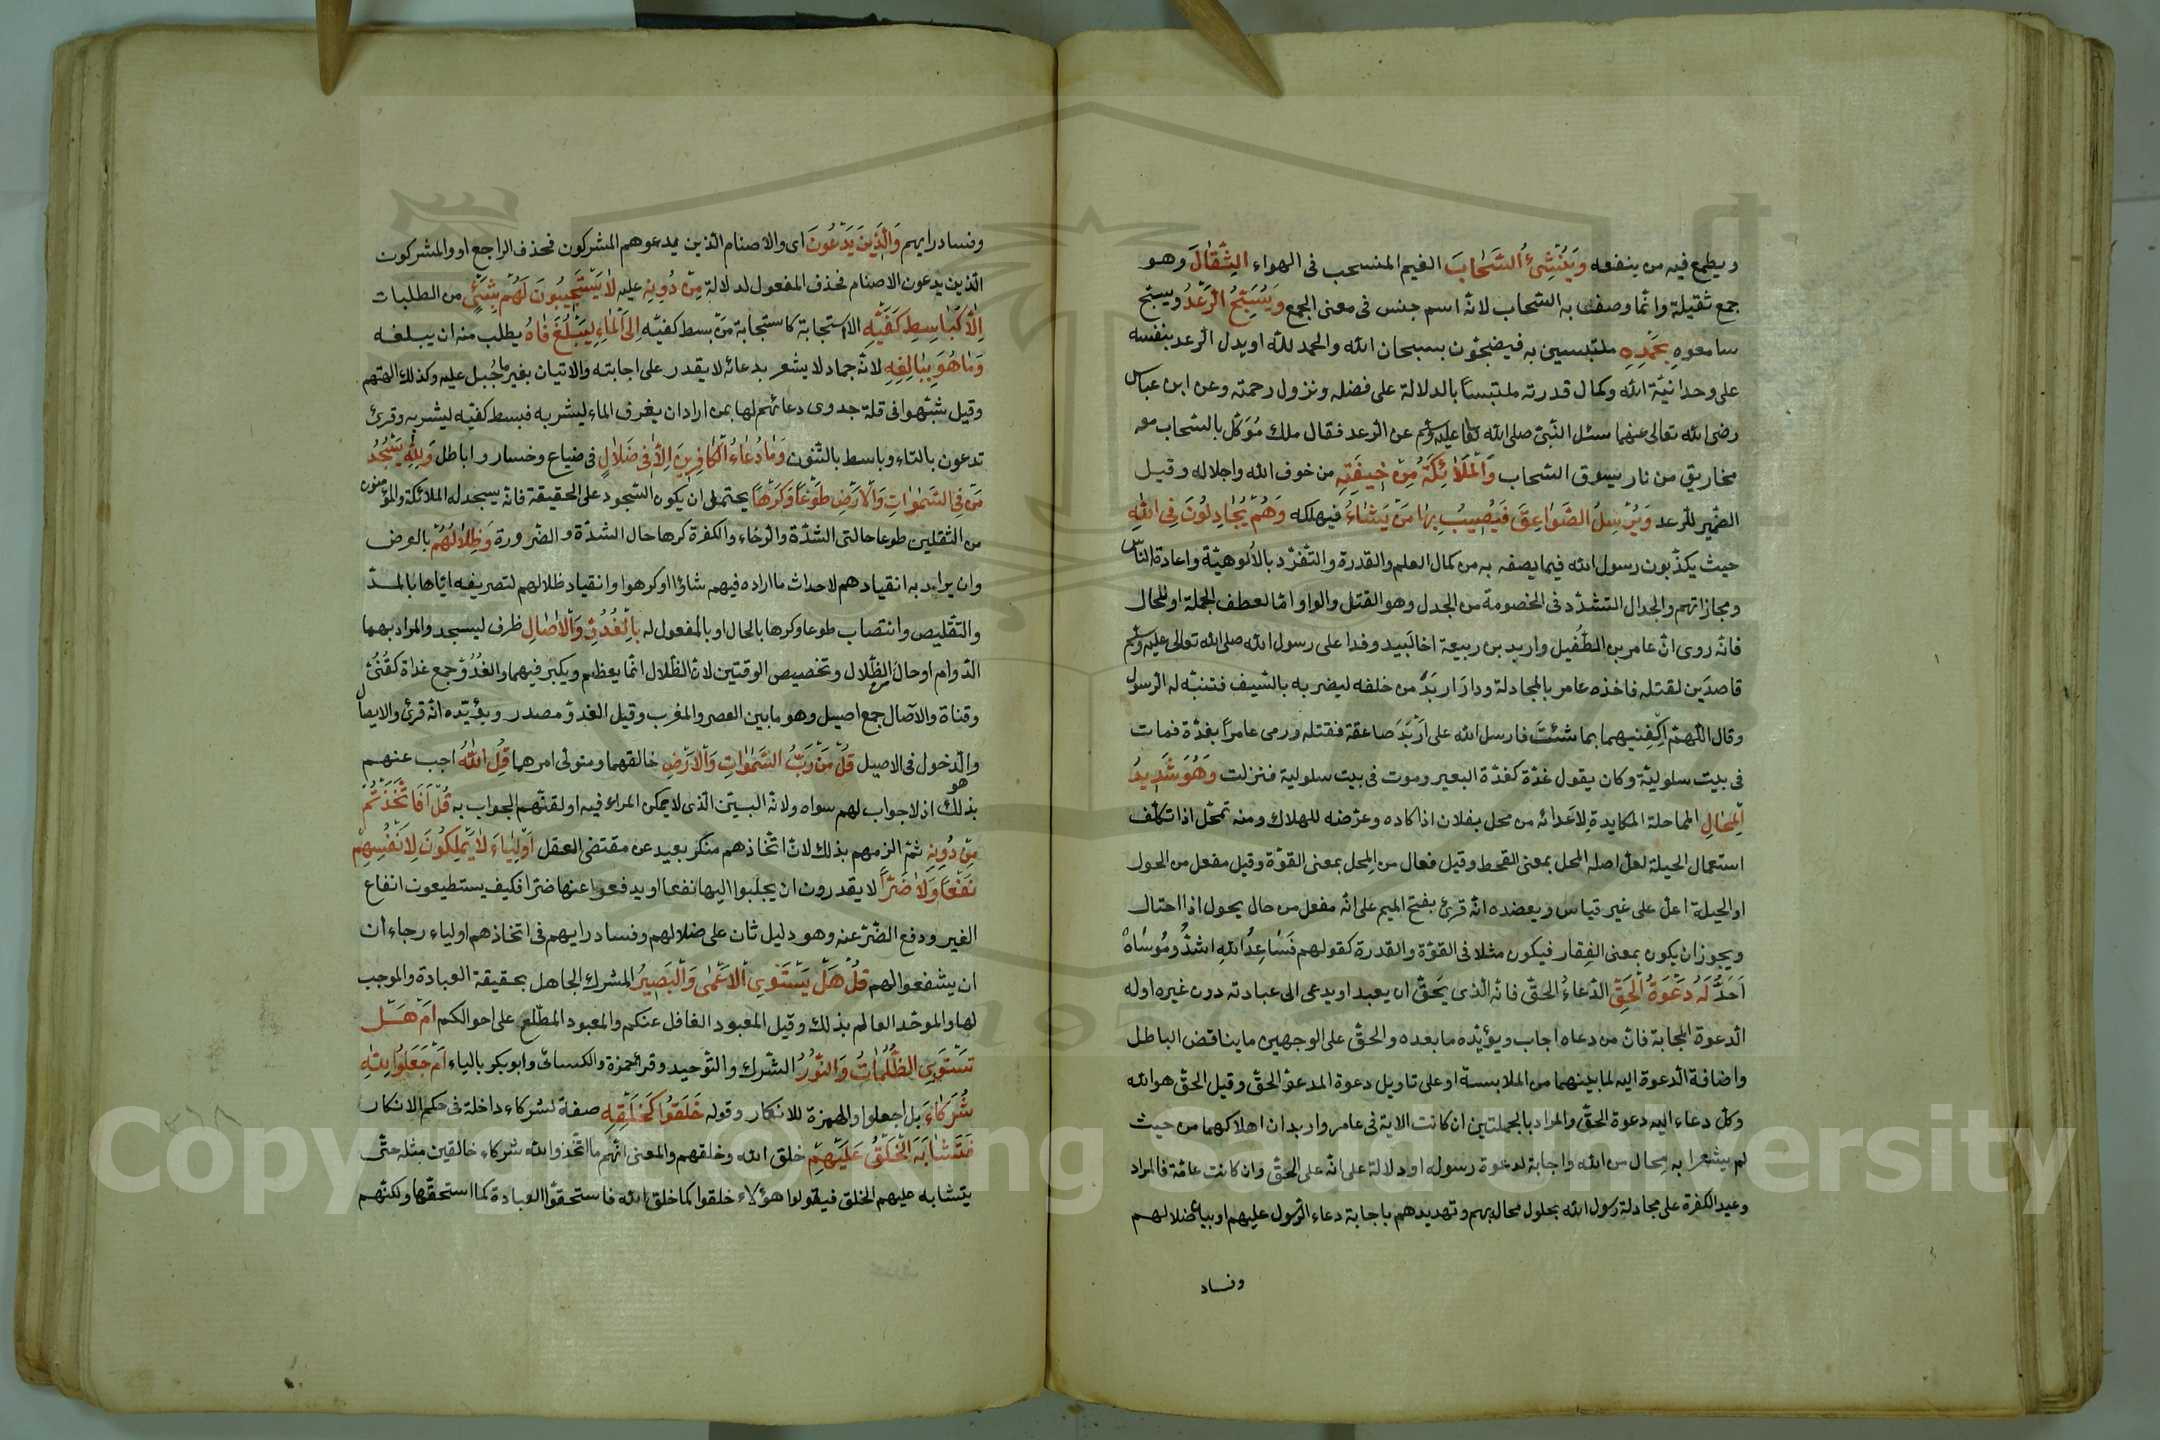 ويطمع فيه من ينفعه وَيُنْشِئُ السَّحَابَ الغيم المنسحب فى الهواء الثِّقَالَ وهو
جمع ثقيلة وانما وصف به السحاب لانه اسم جنس فى معنى الجمع وَيُسَبِّحُ الرَّعْدُ ويسبح
سامعوه بِحَمْدِهِ ملتبسين به فيضجون بسبحان الله والحمد لله او يدل الرعد بنفسه
على وحدانية الله وكمال قدرته ملتبسا بالدلالة على فضله ونزول رحمته وعن ابن عباس
رضى الله تعالى عنهما سئل النبى صلى الله تعا عليه وسلم عن الرعد فقال ملك مُوَكَّل بالسحاب معه
مخاريق من نار يسوق السحاب وَالْمَلَائِكَةُ مِنْ خِيفَتِهِ من خوف الله واجلاله وقيل
الضمير للرعد وَيُرْسِلُ الصَّوَاعِقَ فَيُصِيبُ بِهَا مَنْ يَشَاءُ فيهلكه وَهُمْ يُجَادِلُونَ فِي اللَّهِ
حيث يكذبون رسول الله فيما يصفه به من كمال العلم والقدرة والتفرد بالالوهية واعادة الناس
ومجازاتهم والجدال التشدد فى الخصومة من الجدل وهو الفتل والواو اما لعطف الجملة او للحال
فانه روى ان عامر بن الطفيل واربد بن ربيعة اخا لبيد وفدا على رسول الله صلى الله تعالى عليه وسلم
قاصدَين لقتله فاخذه عامر بالمجادلة ودار اربَدُ من خلفه ليضربه بالسيف فتنبه له الرسول
وقال اللهم اكفنيهما بما شئت فارسل الله على اربَدَ صاعقة فقتلته ورمى عامرا بغدة فمات
فى بيت سلولية وكان يقول غدة كغدة البعير وموت فى بيت سلولية فنزلت وَهُوَ شَدِيدُ
الْمِحَالِ المماحلة المكايدة لاعدائه من محل بفلان اذا كاده وعرضه للهلاك ومنه تمحل اذا تكلف
استعمال الحيلة لعل اصله المحل بمعنى القحط وقيل فعال من المحل بمعنى القوة وقيل مفعل من الحول
او الحيلة اعل على غير قياس ويعضده انه قرئ بفتح الميم على انه مفعل من حال يحول اذا احتال
ويجوز ان يكون بمعنى الفقار فيكون مثلا فى القوة والقدرة كقولهم فَسَاعِدُ اللهِ اشدُّ ومُوسَاهُ
اَحَدُّ لَهُ دَعْوَةُ الْحَقِّ الدعاءُ الحق فانه الذى يَحقّ ان يعبد او يدعى الى عبادته دون غيره او له
الدعوة المجابة فان من دعاه اجاب ويؤيده ما بعده والحق على الوجهين ما يناقض الباطل
واضافة الدعوة اليه لما بينهما من الملابسة او على تاويل دعوة المدعو الحق وقيل الحق هو الله
وكل دعاء اليه دعوة الحق والمراد بالجملتين ان كانت الاية فى عامر واربد ان اهلاكهما من حيث
لم يشعرا به محال من الله واجابة لدعوة رسوله او دلالة على انه على الحق وان كانت عامة فالمراد
وعيد الكفرة على مجادلة رسول الله بحلول محاله بهم وتهديدهم باجابة دعاء الرسول عليهم او بيان ضلالهم
وفساد
وفساد رايهم وَالَّذِينَ يَدْعُونَ اى والاصنام الذين يدعوهم المشركون فحذف الراجع او والمشركون
الذين يدعون الاصنام فحذف المفعول لدلالة مِنْ دُونِهِ عليه لَا يَسْتَجِيبُونَ لَهُمْ بِشَيْءٍ من الطلبات
اِلَّا كَبَاسِطِ كَفَّيْهِ الا استجابة كاستجابة مَن بسط كفيه اِلَى الْمَاءِ لِيَبْلُغَ فَاهُ يطلب منه ان يبلغه
وَمَا هُوَ بِبَالِغِهِ لانه جماد لا يشعر بدعائه لا يقدر على اجابته والاتيان بغير ما جُبل عليه وكذلك الهتهم
وقيل شبهوا فى قلة جدوى دعائهم لها بمن اراد ان يغرف الماء ليشربه فبسط كفيه ليشربه وقرئ
تدعون بالتاء وباسط بالتنوين وَمَا دُعَاءُ الْكَافِرِينَ اِلَّا فِي ضَلَالٍ فى ضياع وخسار وباطل وَلِلَّهِ يَسْجُدُ
مَنْ فِي السَّمٰوَاتِ وَالْاَرْضِ طَوْعًا وَكَرْهًا يحتمل ان يكون السجود على الحقيقة فانه يسجد له الملائكة والمؤمنون
من الثقلين طوعا حالتى الشدة والرخاء والكفرة كرها حال الشدة والضرورة وَظِلَالُهُمْ بالعرض
وان يراد به انقيادهم لاحداث ما اراده فيهم شاؤا او كرهوا وانقياد ظلالهم لتصريفه اياها بالمدّ
والتقليص وانتصاب طوعا وكرها بالحال او بالمفعول له بِالْغُدُوِّ وَالْاٰصَالِ ظرف ليسجد والمراد بهما
الدوام او حال من الظلال وتخصيص الوقتين لان الظلال انما يعظم ويكبر فيهما والغُدُوّ جمع غداة كقُنىّ
وقناة والآصال جمع اصيل وهو ما بين العصر والمغرب وقيل الغدو مصدر ويؤيده انه قرئ والايصال
والدخول فى الاصيل قُلْ مَنْ رَبُّ السَّمٰوَاتِ وَالْاَرْضِ خالقهما ومتولى امرهما قُلِ اللَّهُ اجب عنهم
بذلك اذ لا جواب لهم سواه ولانه هو البين الذى لا يمكن المراء فيه او لقنهم الجواب به قُلْ اَفَاتَّخَذْتُمْ
مِنْ دُونِهِ ثم الزمهم بذلك لان اتخاذهم منكر بعيد عن مقتضى العقل اَوْلِيَاءَ لَا يَمْلِكُونَ لِاَنْفُسِهِمْ
نَفْعًا وَلَا ضَرًّا لا يقدرون ان يجلبوا اليها نفعا او يدفعوا عنها ضرا فكيف يستطيعون انفاع
الغير ودفع الضر عنه وهو دليل ثان على ضلالهم وفساد رايهم فى اتخاذهم اولياء رجاء ان
ان يشفعوا لهم قُلْ هَلْ يَسْتَوِي الْاَعْمٰى وَالْبَصِيرُ المشرك الجاهل بحقيقة العبادة والموجب
لها والموحد العالم بذلك وقيل المعبود الغافل عنكم والمعبود المطلع على احوالكم اَمْ هَلْ
تَسْتَوِي الظُّلُمَاتُ وَالنُّورُ الشرك والتوحيد وقرأ حمزة والكسائى وابو بكر بالياء اَمْ جَعَلُوا لِلَّهِ
شُرَكَاءَ بل اجعلوا والهمزة للانكار وقوله خَلَقُوا كَخَلْقِهِ صفة لشركاء داخلة فى حكم الانكار
فَتَشَابَهَ الْخَلْقُ عَلَيْهِمْ خلق الله وخلقهم والمعنى انهم ما اتخذوا لله شركاء خالقين مثله حتى
يتشابه عليهم الخلق فيقولوا هؤلاء خلقوا كما خلق الله فاستحقوا العبادة كما استحقها ولكنهم
Copyright © King Saud University